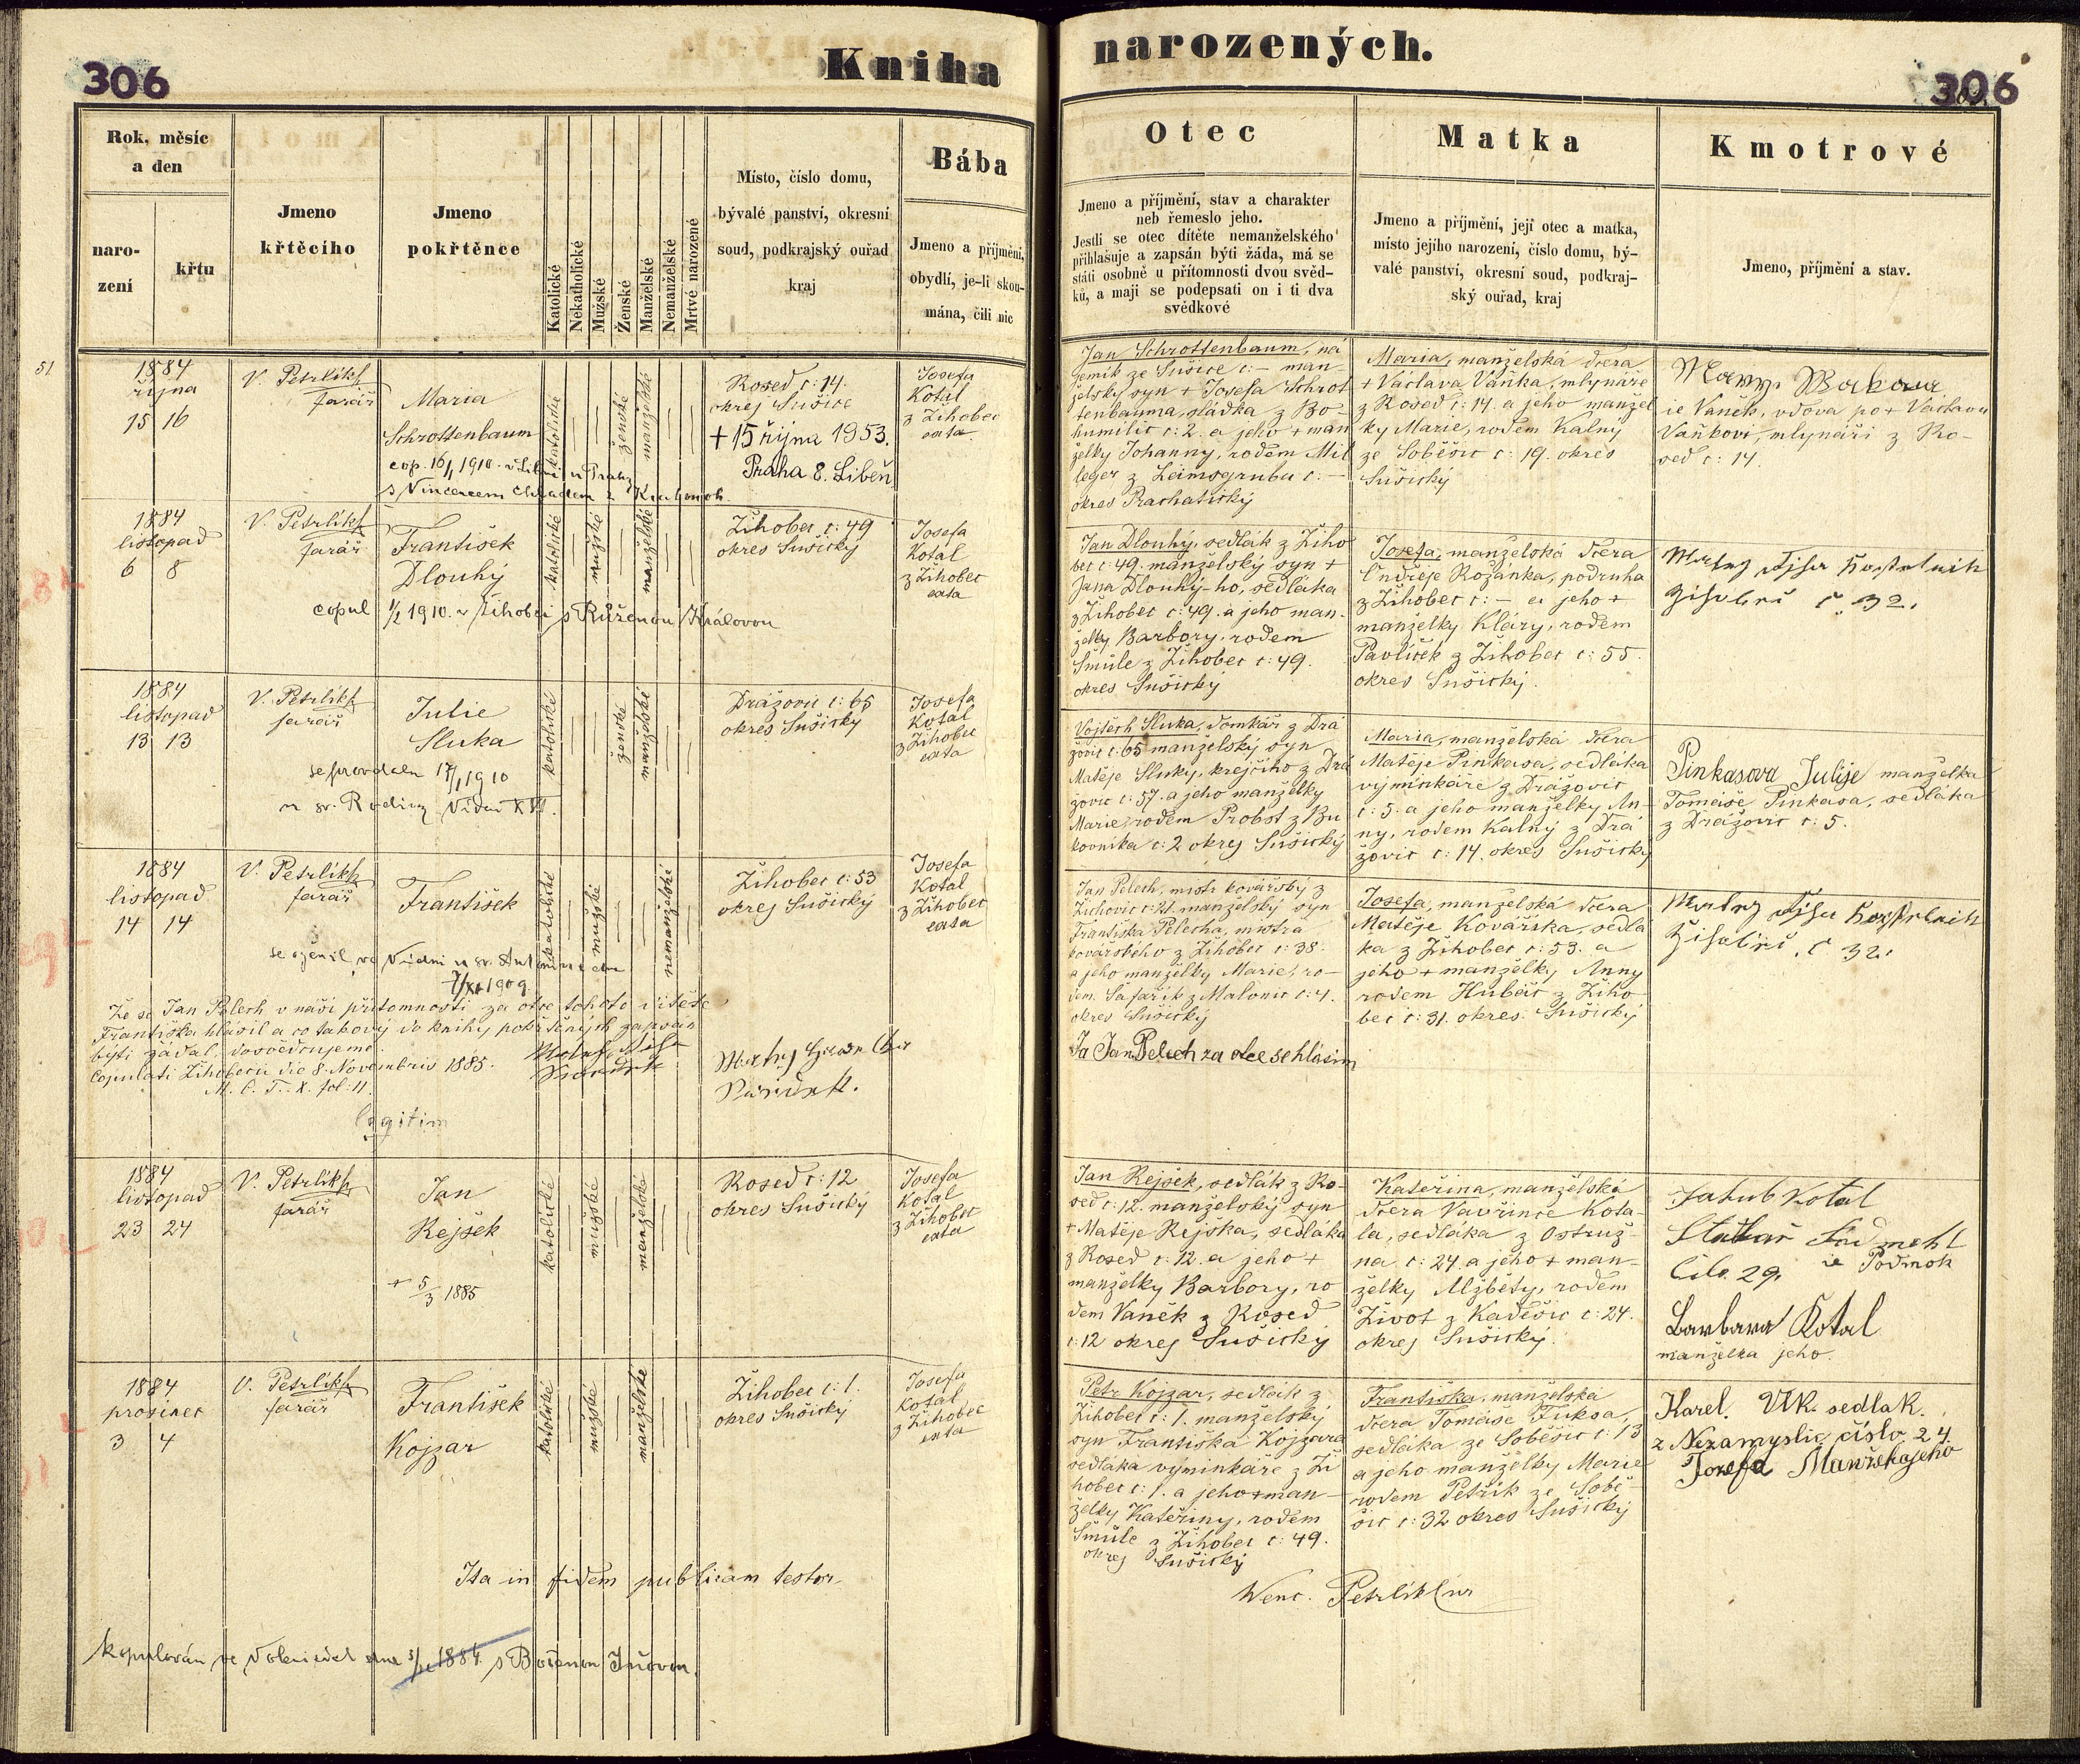 306
Kniha
narozených.
306
Rok, měsíc
a den
naro-
zení
křtu
Jmeno
křtěcího
Jmeno
pokřtěnce
Katolické
Nekatholické
Mužské
Ženské
Manželské
Nemanželské
Mrtvé narozené
Místo, číslo domu,
bývalé panství, okresní
soud, podkrajský ouřad
kraj
Bába
Jmeno a příjmění,
obydlí, je-li skou-
mána, čili nic
Otec
Jmeno a příjmění, stav a charakter
neb řemeslo jeho.
Jestli se otec dítěte nemanželského
přihlašuje a zapsán býti žáda, má se
státi osobně u přítomnosti dvou svěd-
ků, a mají se podepsati on i ti dva
svědkové
Matka
Jmeno a příjmění, její otec a matka,
místo jejího narození, číslo domu, bý-
valé panství, okresní soud, podkraj-
ský ouřad, kraj
Kmotrové
Jmeno, příjmění a stav.
51
1884
října
15 16
V. Petrlík
farář
Maria
Schrottenbaum
cop. 16/1 1910. v Libni u Prahy
s Vincencem
katolické
ženské
manželské
Rosed č: 14.
okres Sušice
+ 15 října 1953.
Praha 8. Libeň
Josefa
Kotal
z Žihobec
exta
Jan Schrottenbaum, ná
jemík ze Sušice č: – man-
želský syn + Josefa Schrot
tenbauma, sládka z Bo-
humilic č: 2. a jeho + man
želky Johanny, rodem Mil
leger z Leimsgruba č: –
okres Prachatický
Maria, manželská dcera
+ Václava Vaňka, mlynáře
z Rosed č: 14. a jeho manžel
ky Marie, rodem Kalný
ze Soběšic č: 19. okres
Sušický
ie Vaněk, vdova po + Václavu
Vaňkovi, mlynáři z Ro-
sed č: 14.
1884
listopad
6 8
V. Petrlík
farář
František
Dlouhý
copul 1/2 1910. v Žihobci s Růženou Královou
katolické
mužské
manželské
Žihobec č: 49
okres Sušický
Josefa
Kotal
z Žihobec
exta
Jan Dlouhý, sedlák z Žiho
bec č: 49. manželský syn +
Jana Dlouhý-ho, sedláka
z Žihobec č: 49. a jeho man-
želky Barbory, rodem
Šmůle z Žihobec č: 49.
okres Sušický
Josefa, manželská dcera
Ondřeje Rožánka, podruha
z Žihobec č: – a jeho +
manželky Kláry, rodem
Pavlíček z Žihobec č: 55.
okres Sušický.
č. 32.
1884
listopad
13 13
V. Petrlík
farář
Julie
Sluka
se provdala 17/1 1910
u sv. Rodiny Vídeň XVI.
katolické
ženské
manželské
Drážovic č: 65
okres Sušický
Josefa
Kotal
z Žihobec
exta
Vojtěch Sluka, domkář z Drá
žovic č: 65 manželský syn
Matěje Sluky, krejčího z Drá
žovic č: 57. a jeho manželky
Marie, rodem Probst z Bu
kovníka č: 2 okres Sušický
Maria, manželská dcera
Matěje Pinkasa, sedláka
výminkáře z Drážovic
č: 5. a jeho manželky An-
ny, rodem Kalný z Drá
žovic č: 14. okres Sušický
Pinkasova Julije manželka
Tomáše Pinkasa, sedláka
z Drážovic č: 5.
1884
listopad
14 14
V. Petrlík
farář
František
se oženil ve Vídni u sv. Antonína
7/XI 1909
katolické
mužské
nemanželské
Žihobec č: 53
okres Sušický
Josefa
Kotal
z Žihobec
exta
Že se Jan Pelech v naší přítomnosti za otce tohoto dítěte
Františka hlásil a co takový do knihy pokřtěných zapsán
býti žádal, dosvědčujeme.
Copulati Žihobecii die 8. Novembris 1885.
M. C. T. X. fol. 11.
legitim
Jan Pelech, mistr kovářský z
Žichovic č: 21. manželský syn
Františka Pelecha, mistra
kovářského z Žihobec č: 38.
a jeho manželky Marie, ro-
dem Šafařík z Malonic č: 4.
okres Sušický
Ja Jan Pelech za otce se hlásim
Josefa, manželská dcera
Matěje Kovářska, sedlá
ka z Žihobec č: 53. a
jeho + manželky Anny
rodem Hubáč z Žiho-
bec č: 31. okres Sušický
č 32.
1884
listopad
23 24
V. Petrlík
farář
Jan
Rejšek
+ 5/3 1885
katolické
mužské
manželské
Rosed č: 12
okres Sušický
Josefa
Kotal
z Žihobec
exta
Jan Rejšek, sedlák z Ro-
sed č: 12. manželský syn
+ Matěje Rejška, sedláka
z Rosed č: 12. a jeho +
manželky Barbory, ro
dem Vaněk z Rosed
č: 12 okres Sušický
Kateřina, manželská
dcera Vavřince Kota-
la, sedláka z Ostruž-
na č: 24. a jeho + man-
želky Alžběty, rodem
Život z Kadešic č: 24.
okres Sušický.
Jakub Kotal
ze Podmok
Čílo. 29.
Barbara Kotal
manželka jeho.
1884
prosinec
3 4
V. Petrlík
farář
František
Kojzar
katolické
mužské
manželské
Žihobec č: 1.
okres Sušický
Josefa
Kotal
z Žihobec
exta
Petr Kojzar, sedlák z
Žihobec č: 1. manželský
syn Františka Kojzara
sedláka výminkáře z Ži
hobec č: 1. a jeho + man-
želky Kateřiny, rodem
Šmůle z Žihobec č: 49.
okres Sušický
Františka, manželská
dcera Tomáše Fuksa,
sedláka ze Soběšic č: 13
a jeho manželky Marie
rodem Petřík ze Sobě-
šic č: 32 okres Sušický
Karel. Vlk. sedlak.
z Nezamyslic číslo 24.
Josefa Manželka jeho
Ita in fidem publicam testor
Wenc. Petrlík
kopulován ve Volenicích dne 1884. s Boženou